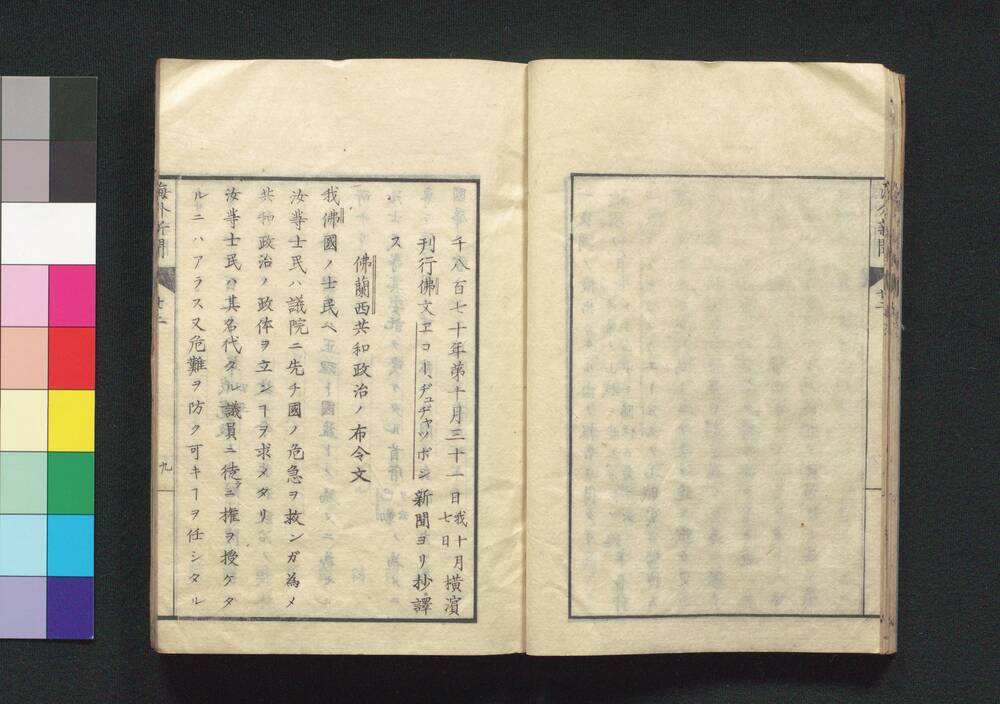 海外新聞
廿二
千八百七十年第十月三十一日我十月七日橫濱
刊行佛文ヱコー、ヂュヂャッポン新聞ヨリ抄譯
ス
佛蘭西共和政治ノ布令文
我佛國ノ士民ヘ
汝等士民ハ議院ニ先チ國ノ危急ヲ救ンガ為メ
共和政治ノ政体ヲ立ンヿヲ求メタリ
汝等士民ハ其名代タル議員ニ徒ニ權ヲ授ケタ
ルニハアラス又危難ヲ防ク可キヿヲ任シタル
海外新聞
廿二
九